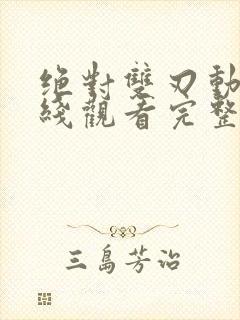 绝對雙刃動
綫觀看完整
三島芳治